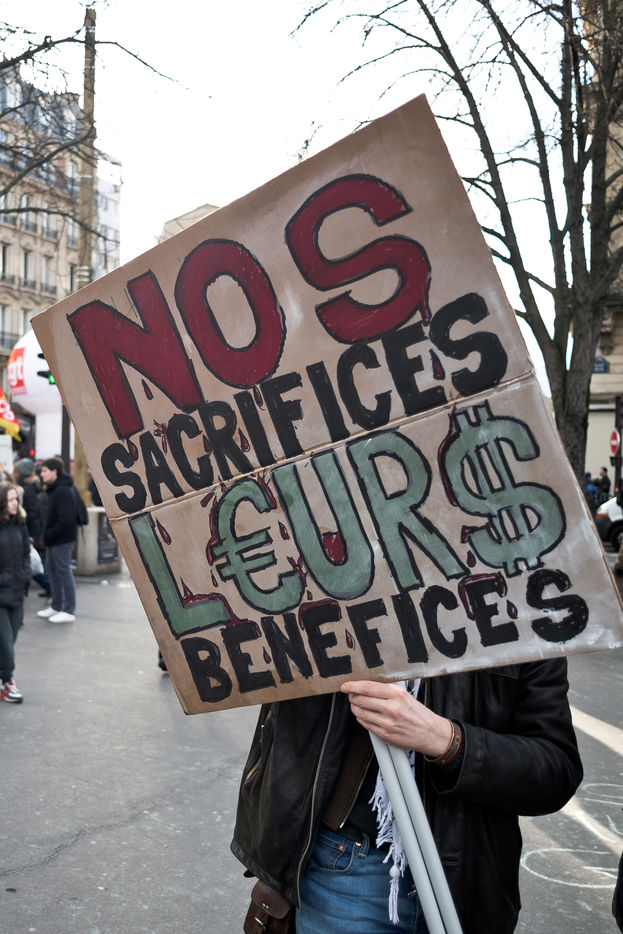 NOS
SACRIFICES
L€UR$
BENEFICES